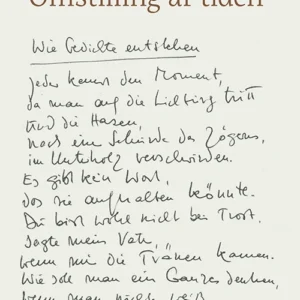 Omställning af tiden
Wie Gedichte entstehen
Jeder kennt den Moment,
da man auf die Lichtung tritt
und die Hasen,
nach einer Sekunde des Zögerns,
im Unterholz verschwinden.
Es gibt kein Wort,
das sie aufhalten könnte.
Du bist wohl nicht bei Trost,
sagte mein Vater,
wenn mir die Tränen kamen.
Wie soll man ein Ganzes denken,
wenn man nicht weiß